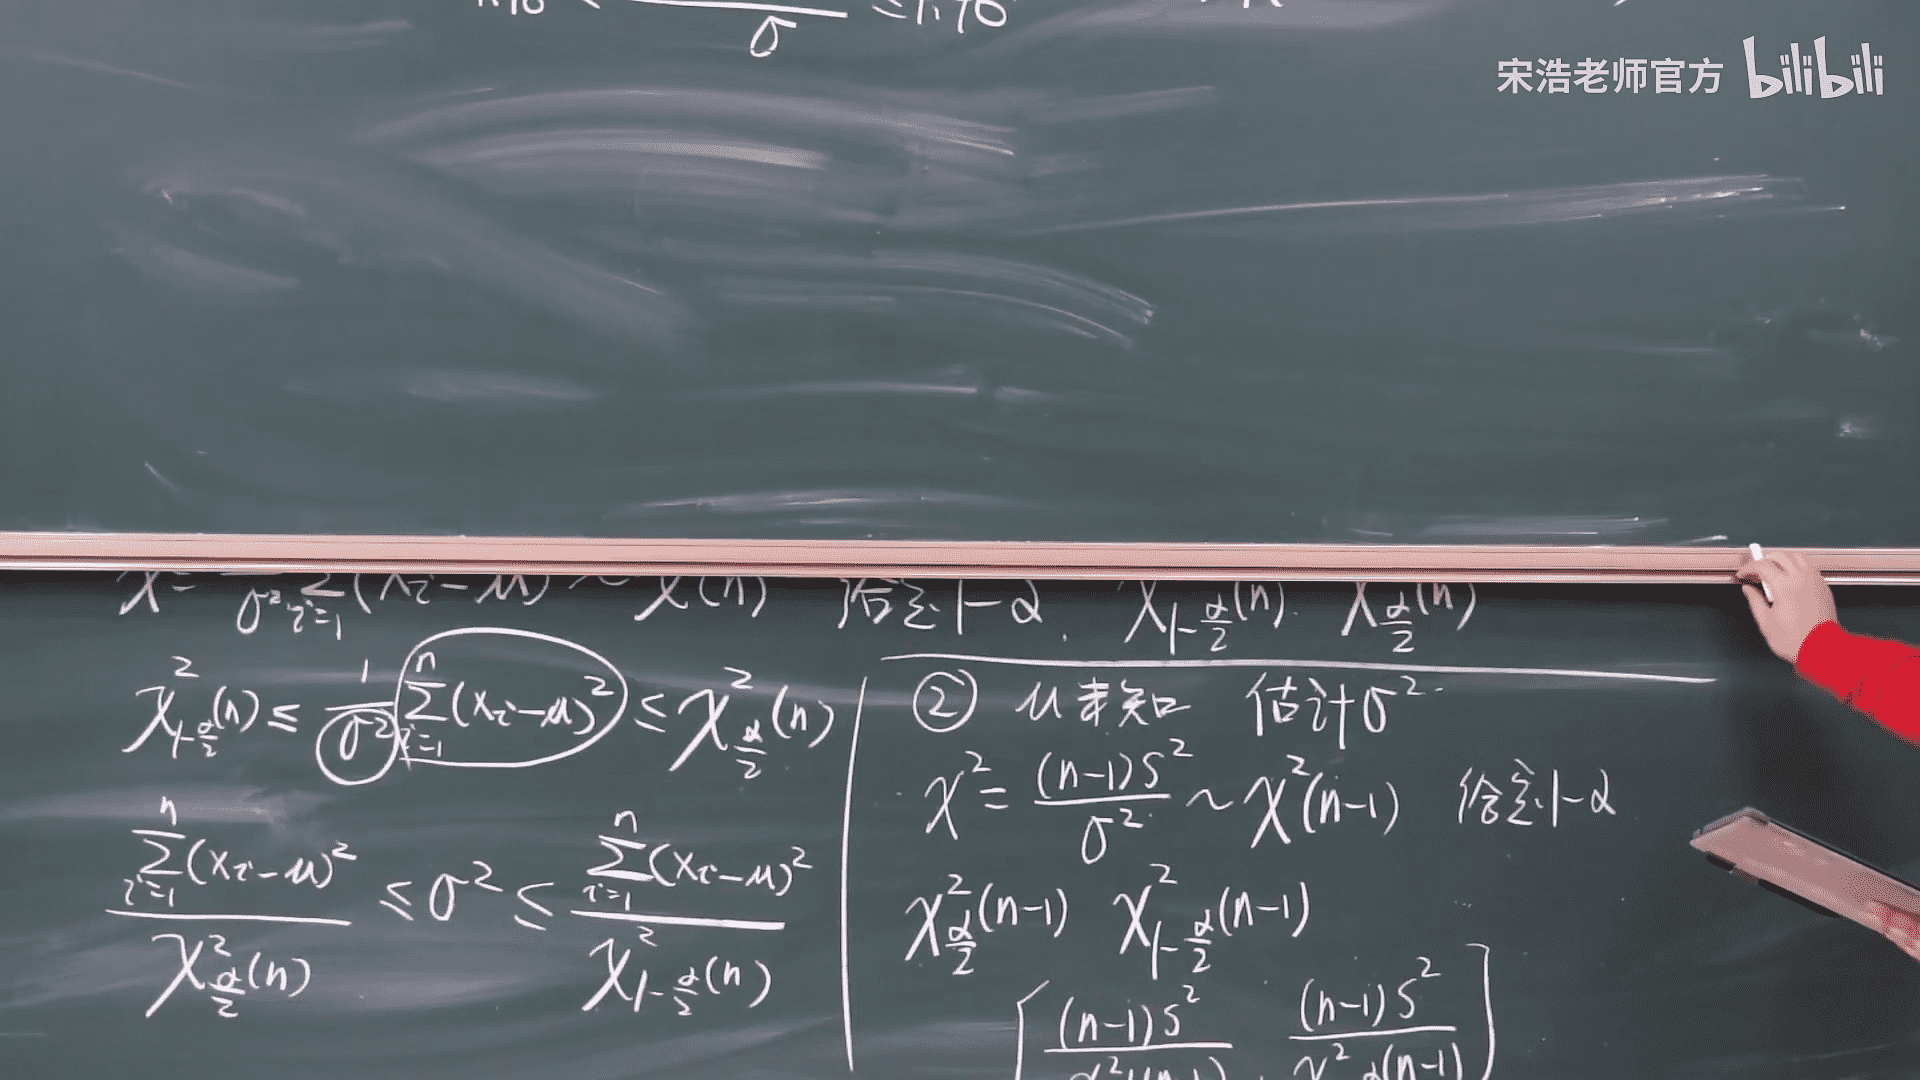 σ ≤ 1.96
宋浩老师官方 bilibili
σ² i=1 (xi-μ) ~ χ(n) 给定1-α. χ1-α/2(n). χα/2(n)
χ²1-α/2(n) ≤ 1/σ² Σⁿi=1(xi-μ)² ≤ χ²α/2(n)
Σⁿi=1(xi-μ)²/χ²α/2(n) ≤ σ² ≤ Σⁿi=1(xi-μ)²/χ²1-α/2(n)
② μ未知 估计σ².
χ² = (n-1)S²/σ² ~ χ²(n-1) 给定1-α
χ²α/2(n-1) χ²1-α/2(n-1)
[(n-1)S² , (n-1)S²]